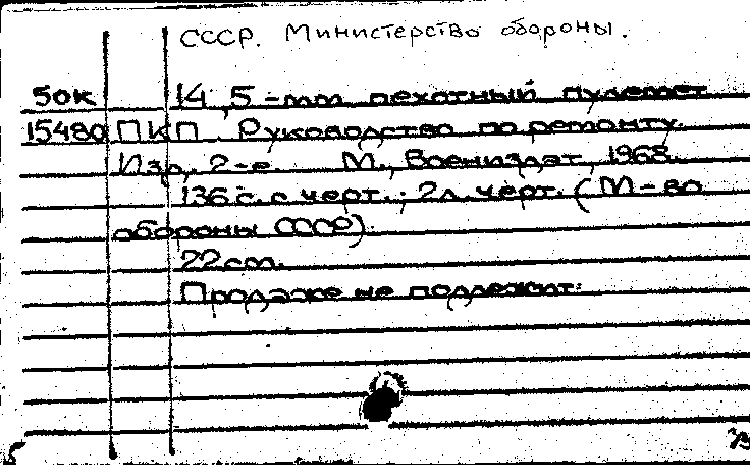 СССР. Министерство обороны.
50к 14,5-mm пехотный пулемет
15480 ПКП. Руководство по ремонту.
Изд. 2-е. М., Воениздат, 1968.
136 с. с черт.; 2 л. черт. (М-во
обороны СССР).
22 cm.
Продаже не подлежит.